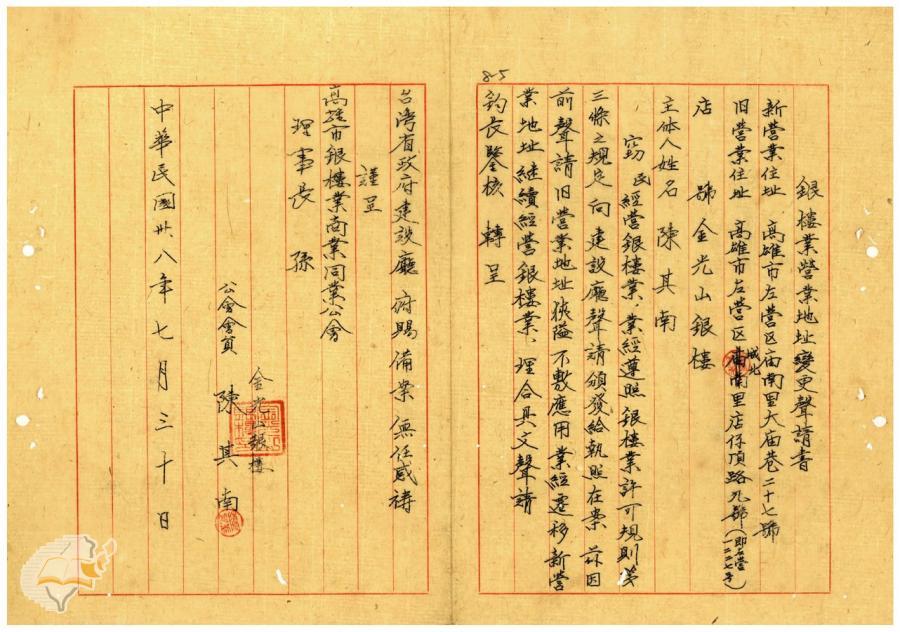 銀樓業營業地址變更聲請書
新營業住址 高雄市左營区庙南里大庙巷二十七號
旧營業住址 高雄市左營区城北里店仔頂路九號(即左營一二二七号)
店 號 金光山銀樓
主体人姓名 陳其南
竊民經營銀樓業,業經遵照銀樓業許可規則第
三條之規定向 建設廳聲請頒發給執照在案 茲因
前聲請旧營業地址狹隘不敷應用業經遷移新營
業地址継續經營銀樓業、理合具文聲請
鈞長鑒核 轉呈
8-5
台灣省政府建設廳 俯賜備案 無任感禱
謹呈
高雄市銀樓業商業同業公會
理事長 孫
公會會員 金光山銀樓
陳其南
中華民國卅八年七月三十日